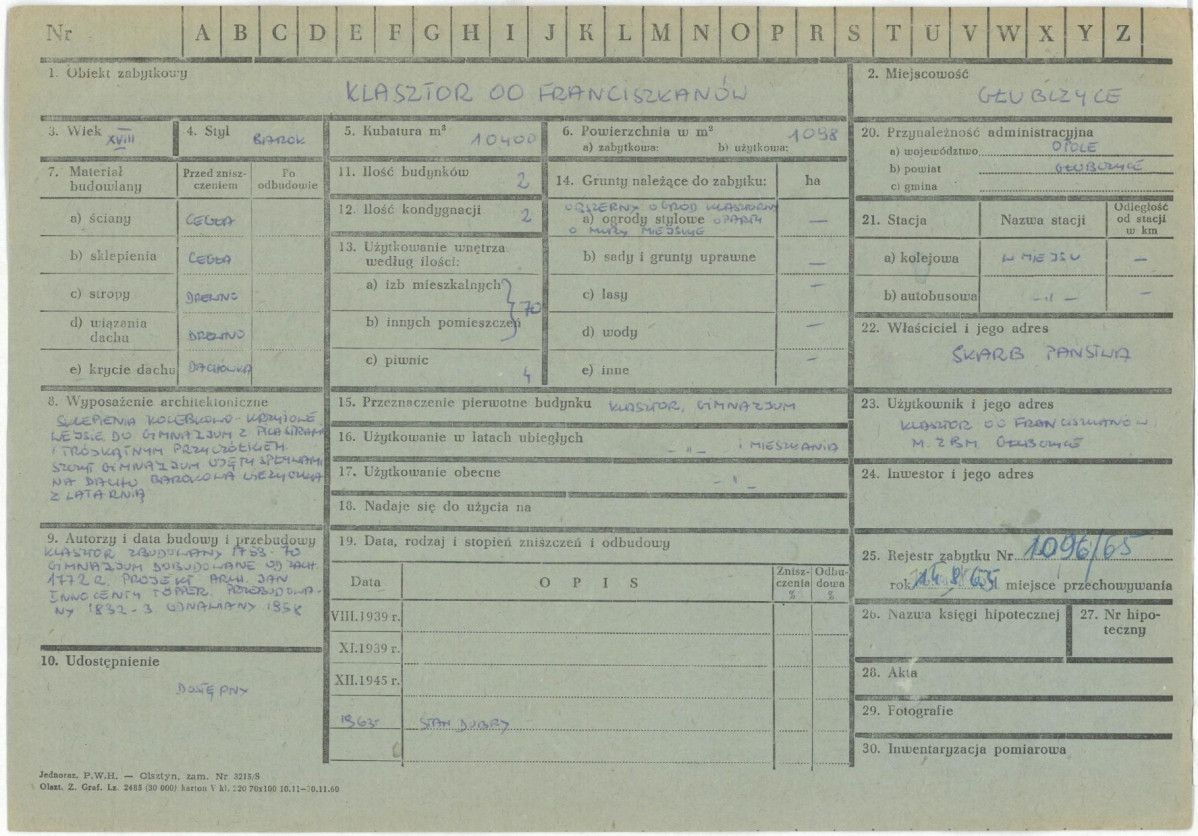 Nr A B C D E F G H I J K L M N O P R S T U V W X Y Z
1. Obiekt zabytkowy
KLASZTOR OO FRANCISZKANÓW
2. Miejscowość
GŁUBCZYCE
3. Wiek
XVIII
4. Styl
BAROK
5. Kubatura m³
10400
6. Powierzchnia w m²
1098
a) zabytkowa: b) użytkowa:
7. Materiał budowlany
Przed zniszczeniem
Po odbudowie
a) ściany CEGŁA
b) sklepienia CEGŁA
c) stropy DREWNO
d) wiązania dachu DREWNO
e) krycie dachu DACHÓWKA
8. Wyposażenie architektoniczne
SKLEPIENIA KOLEBKOWO-KRZYŻOWE
WEJŚCIE DO GIMNAZJUM Z PILASTRAMI
I TRÓJKĄTNYM PRZYCZÓŁKIEM.
SZCZYT GIMNAZJUM UJĘTY SPŁYWAMI
NA DACHU BAROKOWA WIEŻYCZKA
Z LATARNIĄ
9. Autorzy i data budowy i przebudowy
KLASZTOR ZBUDOWANY 1753-70
GIMNAZJUM DOBUDOWANE OD ZACH.
1772 R. PROJEKT ARCH. JAN
INNOCENTY TÖPPER. PRZEBUDOWA-
NY 1832-3 ODNAWIANY
10. Udostępnienie
DOSTĘPNY
11. Ilość budynków 2
12. Ilość kondygnacji 2
13. Użytkowanie wnętrza
według ilości:
a) izb mieszkalnych
b) innych pomieszczeń
} 70
c) piwnic 4
14. Grunty należące do zabytku: ha
OBSZERNY OGRÓD KLASZTORNY
a) ogrody stylowe OPARTY —
O MURY MIEJSKIE
b) sady i grunty uprawne —
c) lasy —
d) wody —
e) inne —
15. Przeznaczenie pierwotne budynku KLASZTOR, GIMNAZJUM
16. Użytkowanie w latach ubiegłych — „ — I MIESZKANIA
17. Użytkowanie obecne — „ —
18. Nadaje się do użycia na
19. Data, rodzaj i stopień zniszczeń i odbudowy
Data OPIS Zniszczenia % Odbudowa %
VIII.1939 r.
XI.1939 r.
XII.1945 r.
1965 STAN DOBRY
20. Przynależność administracyjna
a) województwo OPOLE
b) powiat GŁUBCZYCE
c) gmina
21. Stacja Nazwa stacji Odległość od stacji w km
a) kolejowa W MIEJSCU —
b) autobusowa — „ — —
22. Właściciel i jego adres
SKARB PAŃSTWA
23. Użytkownik i jego adres
KLASZTOR OO FRANCISZKANÓW
M. ZBM GŁUBCZYCE
24. Inwestor i jego adres
25. Rejestr zabytku Nr 1096/65
rok 14/8/65 miejsce przechowywania
26. Nazwa księgi hipotecznej
27. Nr hipoteczny
28. Akta
29. Fotografie
30. Inwentaryzacja pomiarowa
Jednoraz. P.W.H. — Olsztyn, zam. Nr 3215/S
Olszt. Z. Graf. Lz. 2465 (30 000) karton V kl. 220 70x100 10.11-30.11.60